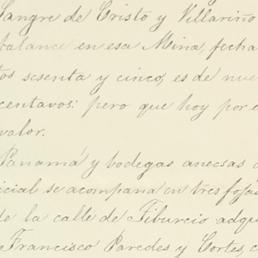 Sangre de Cristo y Villariño
balance en esa Mina, fecha
tos sesenta y cinco, es de nue
centavos: pero que hoy por e
valor.
Panamá y bodegas anecsas a
icial se acompaña en tres fojas
de la calle de Tiburcio adqu
Francisco Paredes y Cortes, c